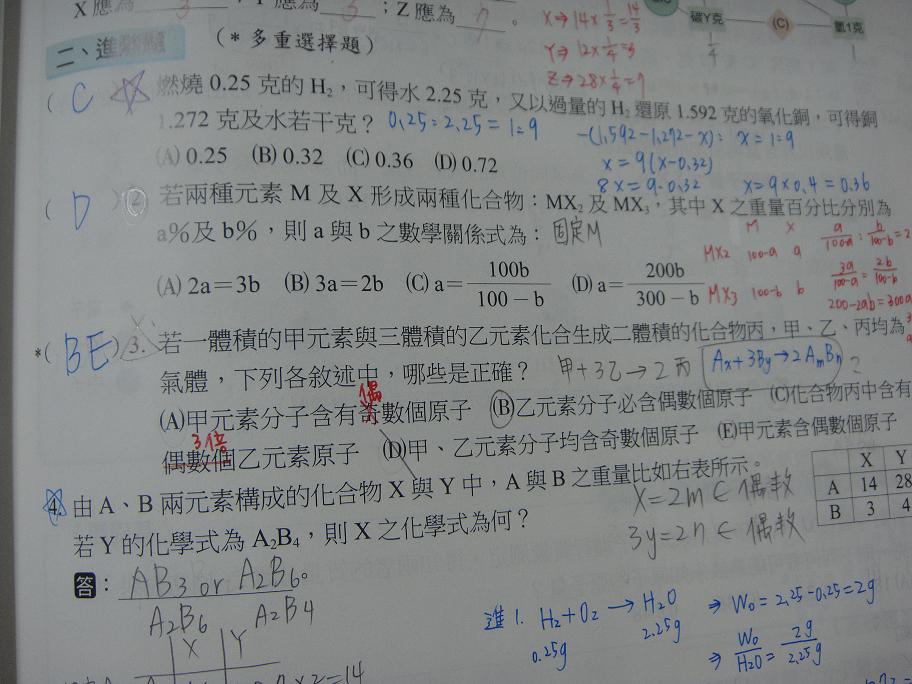 X 應為 3 ; Y 應為 6 ; Z 應為 7 。
X⇒14×1/3=14/3
Y⇒12×1/4=3
Z⇒28×1/4=7
碳Y克
1/4
(C)
氫1克
1
二、進
(*多重選擇題)
( C ) 燃燒 0.25 克的 H₂,可得水 2.25 克,又以過量的 H₂ 還原 1.592 克的氧化銅,可得銅
1.272 克及水若干克? 0.25:2.25=1:9
-(1.592-1.272-x): x=1:9
(A) 0.25 (B) 0.32 (C) 0.36 (D) 0.72
x=9(x-0.32)
8x=9·0.32 x=9×0.4=0.36
( D ) 2. 若兩種元素 M 及 X 形成兩種化合物:MX₂ 及 MX₃,其中 X 之重量百分比分別為
a%及 b%,則 a 與 b 之數學關係式為: 固定M
M X
MX2 100-a a
MX3 100-b b
a/100-a : b/100-b = 2
3a/100-a = 2b/100-b
200-2ab=300a
(A) 2a=3b (B) 3a=2b (C) a=100b/100-b (D) a=200b/300-b
*( BE ) 3. 若一體積的甲元素與三體積的乙元素化合生成二體積的化合物丙,甲、乙、丙均為
氣體,下列各敘述中,哪些是正確? 甲+3乙→2丙 Ax+3By→2AmBn ?
偶
(A)甲元素分子含有奇數個原子 (B)乙元素分子必含偶數個原子 (C)化合物丙中含有
3倍
偶數個乙元素原子 (D)甲、乙元素分子均含奇數個原子 (E)甲元素含偶數個原子
4. 由 A、B 兩元素構成的化合物 X 與 Y 中,A 與 B 之重量比如右表所示。
若 Y 的化學式為 A₂B₄,則 X 之化學式為何?
X Y
A 14 28
B 3 4
X=2m ∈ 偶數
3y=2n ∈ 偶數
答: AB3 or A2B6。
A2B6 A2B4
X Y
×2=14
進1. H2+O2 → H2O ⇒ Wo=2.25-0.25=2g
0.25g 2.25g
⇒ Wo/H2O = 2g/2.25g